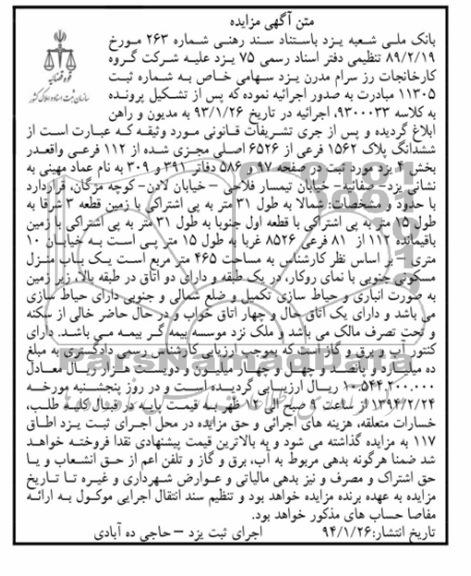 متن آگهی مزایده
بانک ملی شعبه یزد باستناد سند رهنی شماره ۲۶۳ مورخ
۸۹/۲/۱۹ تنظیمی دفتر اسناد رسمی ۷۵ یزد علیه شرکت گروه
کارخانجات رز سرام مدرن یزد سهامی خاص به شماره ثبت
۱۱۳۰۵ مبادرت به صدور اجرائیه نموده که پس از تشکیل پرونده
به کلاسه ۹۳۰۰۰۳۳، اجرائیه در تاریخ ۹۳/۱/۲۶ به مدیون و راهن
قوه قضائیه
سازمان ثبت اسناد و املاک کشور
ابلاغ گردیده و پس از جری تشریفات قانونی مورد وثیقه که عبارت است از
ششدانگ پلاک ۱۵۶۲ فرعی از ۶۵۲۶ اصلی مجزی شده از ۱۱۲ فرعی واقعدر
بخش ۴ یزد مورد ثبت در صفحه ۹۷ و ۵۸۶ دفاتر ۳۹۱ و ۳۰۹ به نام عماد مهینی به
نشانی یزد- صفائیه- خیابان تیمسار فلاحی – خیابان لادن- کوچه مژگان، قراردارد
با حدود و مشخصات: شمالا به طول ۳۱ متر به پی اشتراکی با زمین قطعه ۳ شرقا به
طول ۱۵ متر به پی اشتراکی با قطعه اول جنوبا به طول ۳۱ متر به پی اشتراکی با زمین
باقیمانده ۱۱۲ از ۸۱ فرعی ۸۵۲۶ غربا به طول ۱۵ متر پی است به خیابان ۱۰
متری، بر اساس نظر کارشناس به مساحت ۴۶۵ متر مربع است یک باب منزل
مسکونی جنوبی با نمای روکار، در یک طبقه و دارای دو اتاق در طبقه بالا، زیر زمین
به صورت انباری و حیاط سازی تکمیل و ضلع شمالی و جنوبی دارای حیاط سازی
می باشد و دارای یک اتاق حال و چهار اتاق خواب و در حال حاضر خالی از سکنه
و تحت تصرف مالک می باشد و ملک نزد موسسه بیمه گر بیمه می باشد. دارای
کنتور آب و برق و گاز است که بموجب ارزیابی کارشناس رسمی دادگستری به مبلغ
ده میلیارد و پانصد و چهل و چهار میلیون و دویست هزار ریال معادل
۱۰.۵۴۴.۲۰۰.۰۰۰ ریال ارزیابی گردیده است و در روز پنجشنبه مورخه
۱۳۹۴/۲/۲۴ از ساعت ۹ صبح الی ۱۲ ظهر به قیمت پایه در قبال کلیه طلب،
خسارات متعلقه، هزینه های اجرائی و حق مزایده در محل اجرای ثبت یزد اطاق
۱۱۷ به مزایده گذاشته می شود و به بالاترین قیمت پیشنهادی نقدا فروخته خواهد
شد ضمنا هرگونه بدهی مربوط به آب، برق و گاز و تلفن اعم از حق انشعاب و یا
حق اشتراک و مصرف و نیز بدهی مالیاتی و عوارض شهرداری و غیره تا تاریخ
مزایده به عهده برنده مزایده خواهد بود و تنظیم سند انتقال اجرایی موکول به ارائه
مفاصا حساب های مذکور خواهد بود.
تاریخ انتشار: ۹۴/۱/۲۶ اجرای ثبت یزد – حاجی ده آبادی